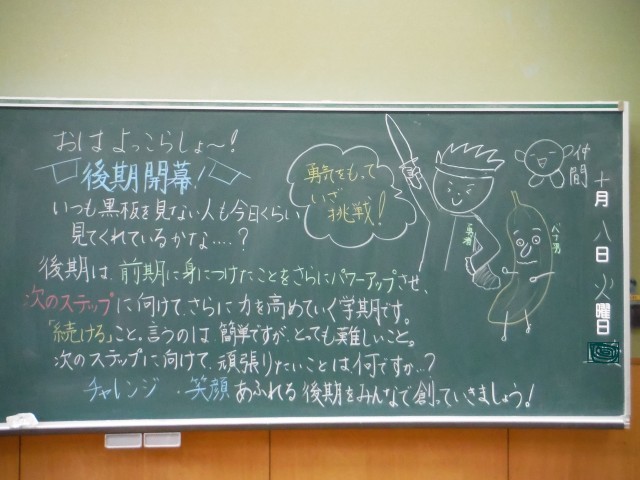 おはよっこらしょ〜!
後期開幕!
いつも黒板を見ない人も今日くらい
見てくれているかな....?
後期は、前期に身につけたことをさらにパワーアップさせ、
次のステップに向けて、さらに力を高めていく学期です。
「続ける」こと。言うのは、簡単ですが、とっても難しいこと。
次のステップに向けて、頑張りたいことは何ですか..?
チャレンジ・笑顔あふれる後期をみんなで創っていきましょう!
勇気をもって
いざ
挑戦!
勇者
仲間
バナ男
十月八日火曜日